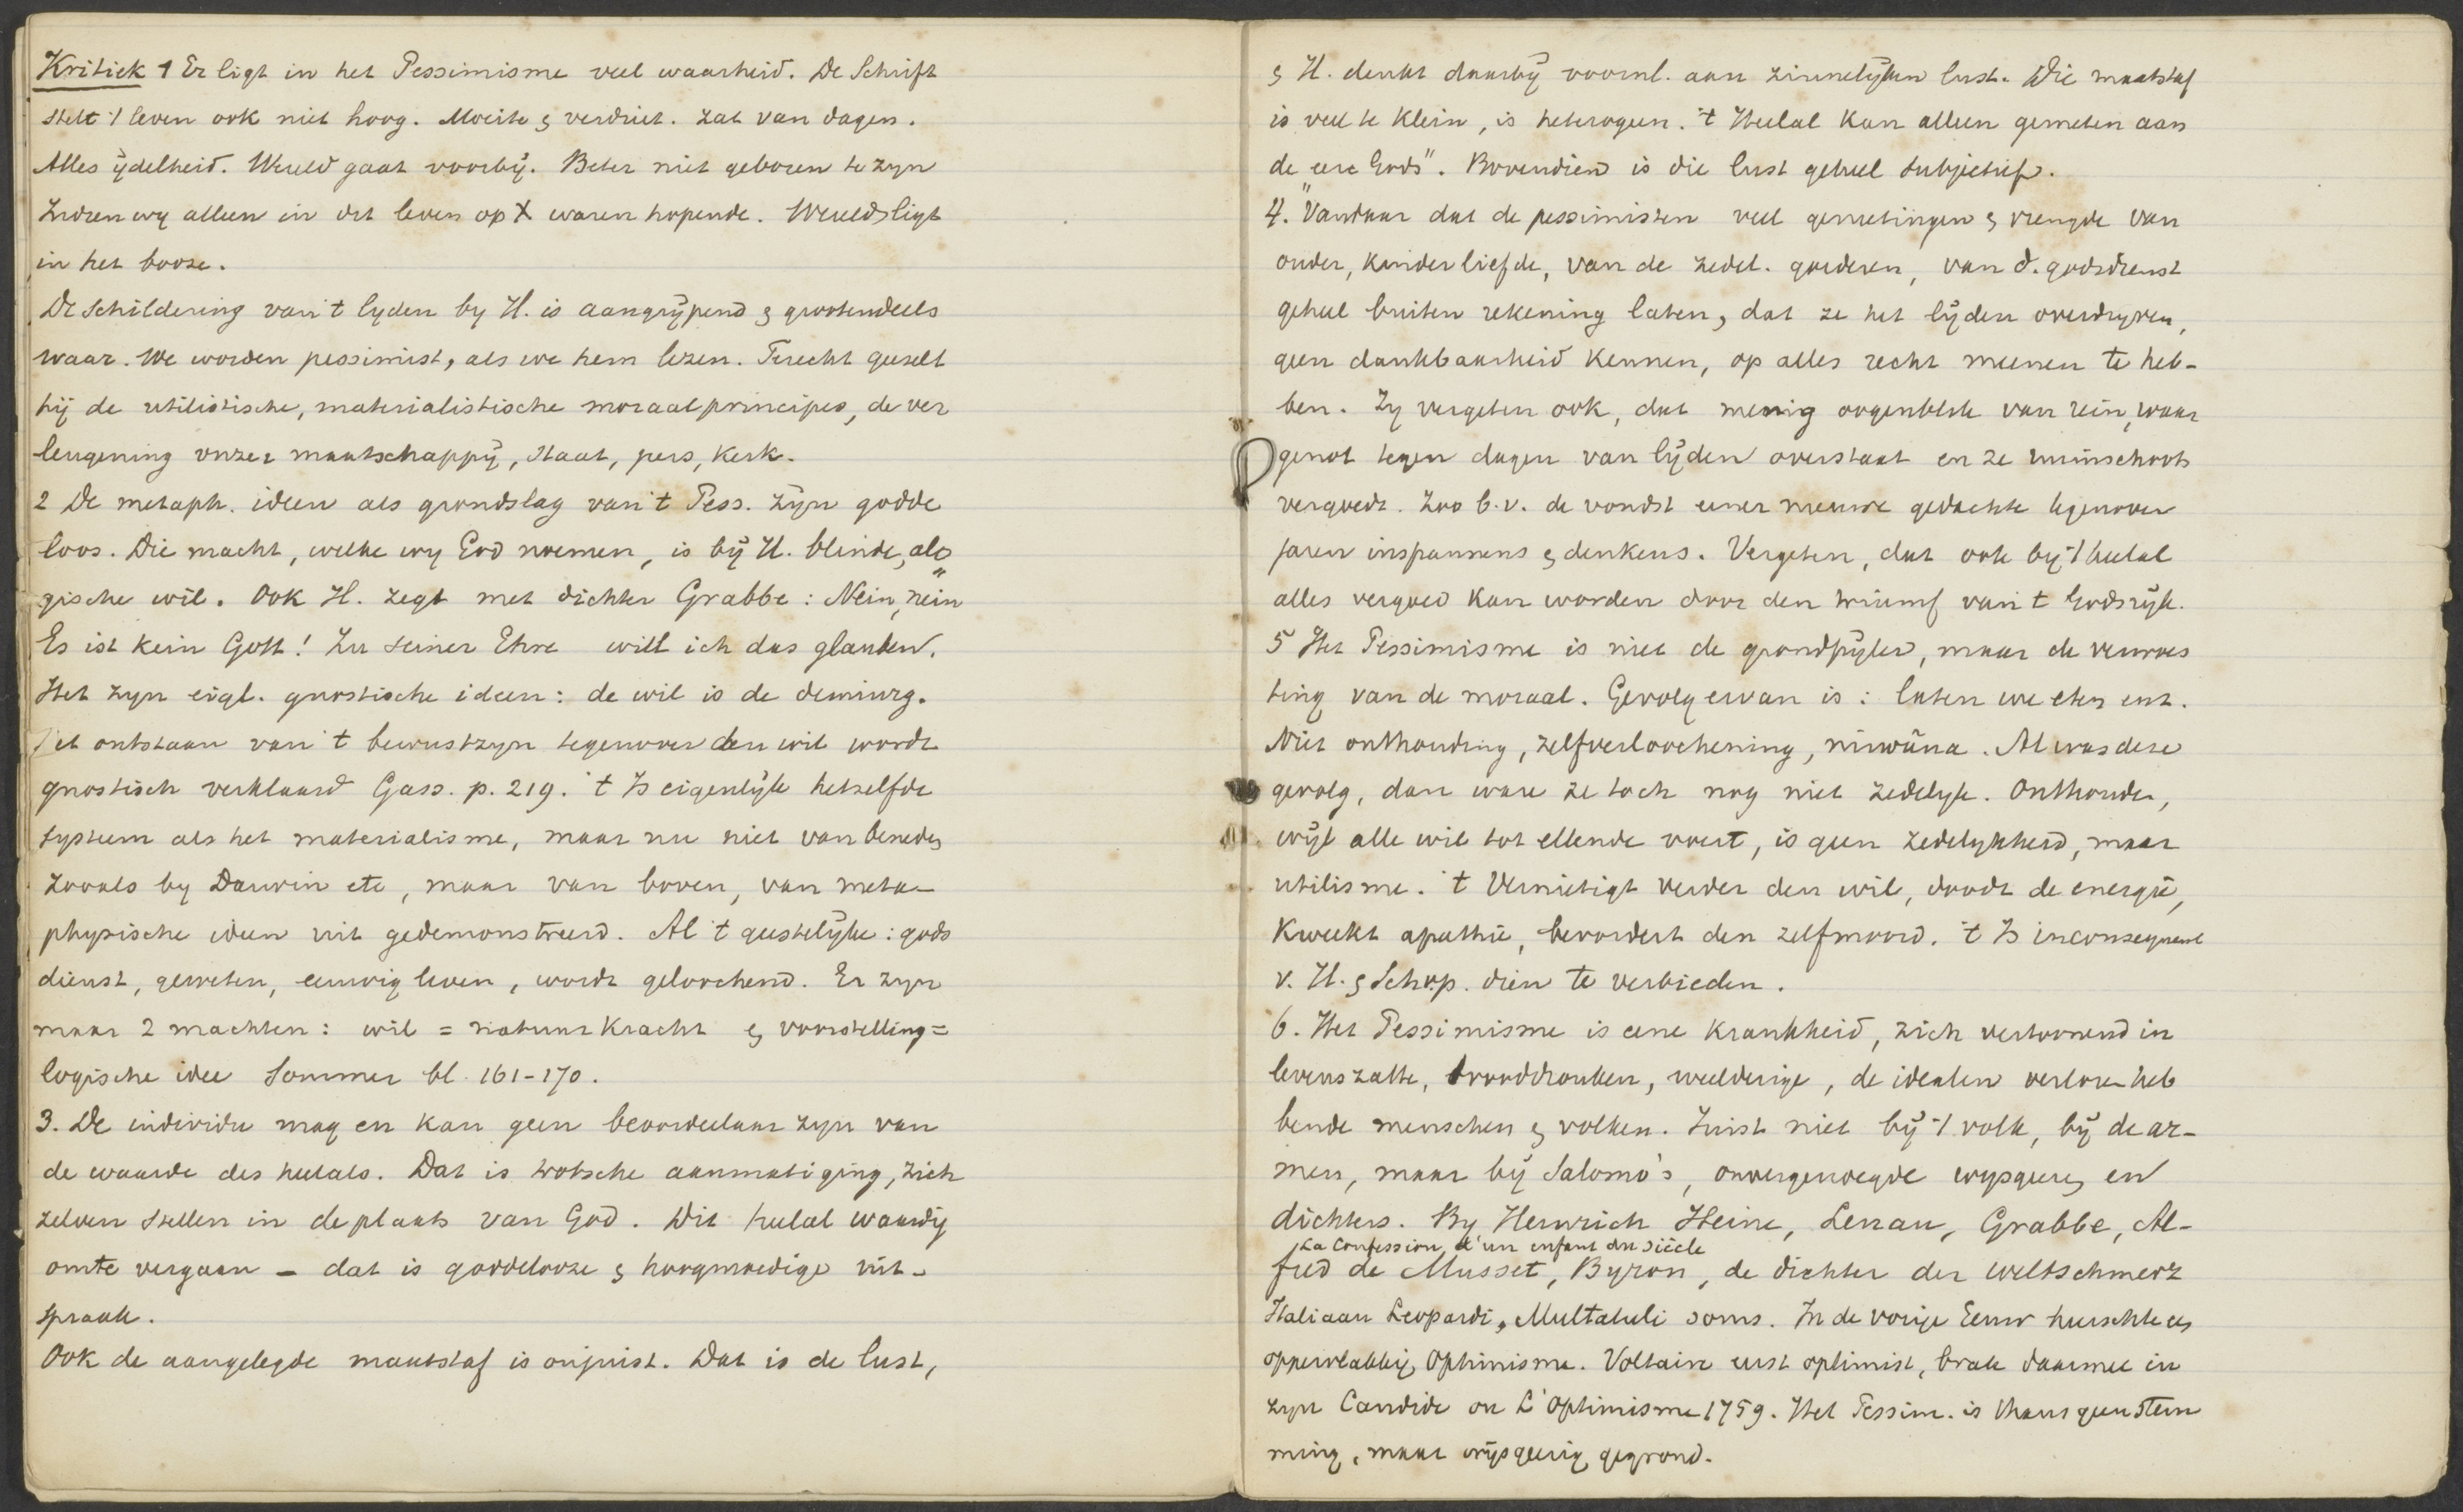 Kritiek 1 Er ligt in het Pessimisme veel waarheid. De Schrift
stelt 't leven ook niet hoog. Moeite & verdriet. Zat van dagen.
Alles ijdelheid. Wereld gaat voorbij. Beter niet geboren te zijn
Indien wij alleen in dit leven op X waren hopende. Wereld ligt
in het booze.
De schildering van 't lyden by H. is aangrijpend & grootendeels
waar. We worden pessimist, als we hem lezen. Terecht geeselt
hij de utilistische, materialistische moraalprincipes, de ver
leugening onzer maatschappij, Staat, pers, Kerk.
2 De metaph. ideen als grondslag van 't Pess. zijn godde
loos. Die macht, welke wy God noemen, is bij H. blinde, alo
gische wil. Ook H. zegt met dichter Grabbe: Nein, nein"
Es ist kein Gott! Zu seiner Ehre will ich das glauben.
Het zyn eigl. gnostische ideen: de wil is de demiurg.
Het ontstaan van 't bewustzyn tegenover den wil wordt
gnostisch verklaard Gass. p. 219. 't Is eigenlijk hetzelfde
systeem als het materialisme, maar nu niet van beneden
zooals by Darwin etc, maar van boven, van meta-
physische ideen uit gedemonstreerd. Al 't geestelijke: gods
dienst, geweten, eeuwig leven, wordt geloochend. Er zyn
maar 2 machten: wil = natuurkracht & voorstelling =
logische idee Sommer bl. 161-170.
3. De individu mag en kan geen beoordeelaar zyn van
de waarde des heelals. Dat is trotsche aanmatiging, zich
zelven stellen in de plaats van God. Dit heelal waardig
om te vergaan - dat is goddelooze & hoogmoedige uit-
spraak.
Ook de aangelegde maatstaf is onjuist. Dat is de lust,
& H. denkt daarbij voornl. aan zinnelijken lust. Die maatstaf
is veel te klein, is heterogeen. 't Heelal kan alleen gemeten aan
de "eere Gods". Bovendien is die lust geheel subjectief.
4. Vandaar dat de pessimisten veel genietingen & vreugde van
ouder, kinderliefde, van de zedel. goederen, van d. godsdienst
geheel buiten rekening laten, dat ze het lijden overdryven,
geen dankbaarheid kennen, op alles recht meenen te heb-
ben. Zy vergeten ook, dat menig oogenblik van rein, waar
genot tegen dagen van lijden overstaat en ze ruimschoots
vergoedt. Zoo b.v. de vondst eener nieuwe gedachte tegenover
jaren inspannens & denkens. Vergeten, dat ook by 't heelal
alles vergoed kan worden door den triumf van 't Godsrijk.
5 Het Pessimisme is niet de grondpijler, maar de verwoes
ting van de moraal. Gevolg ervan is: laten we eten enz.
Niet onthouding, zelfverloochening, nirwâna. Al was deze
gevolg, dan ware ze toch nog niet zedelyk. Onthouden,
wijl alle wil tot ellende voert, is geen zedelykheid, maar
utilisme. 't Vernietigt verder den wil, doodt de energie,
kweekt apathie, bevordert den zelfmoord. 't Is inconsequent
v. H. & Schop. dien te verbieden.
6. Het Pessimisme is eene krankheid, zich vertoonend in
levenszatte, brooddronken, weelderige, de idealen verloren heb
bende menschen & volken. Juist niet bij 't volk, bij de ar-
men, maar bij Salomo's, onvergenoegde wysgeeren en
dichters. By Heinrich Heine, Lenau, Grabbe, Al-
La Confession d'un enfant du siècle
fred de Musset, Byron, de dichter der weltschmerz
Italiaan Leopardi, Multatuli soms. In de vorige Eeuw heerschte een
oppervlakkig Optimisme. Voltaire eerst optimist, brak daarmee in
zyn Candide ou L'Optimisme 1759. Het Pessim. is thans geen stem
ming, maar wijsgeerig gegrond.